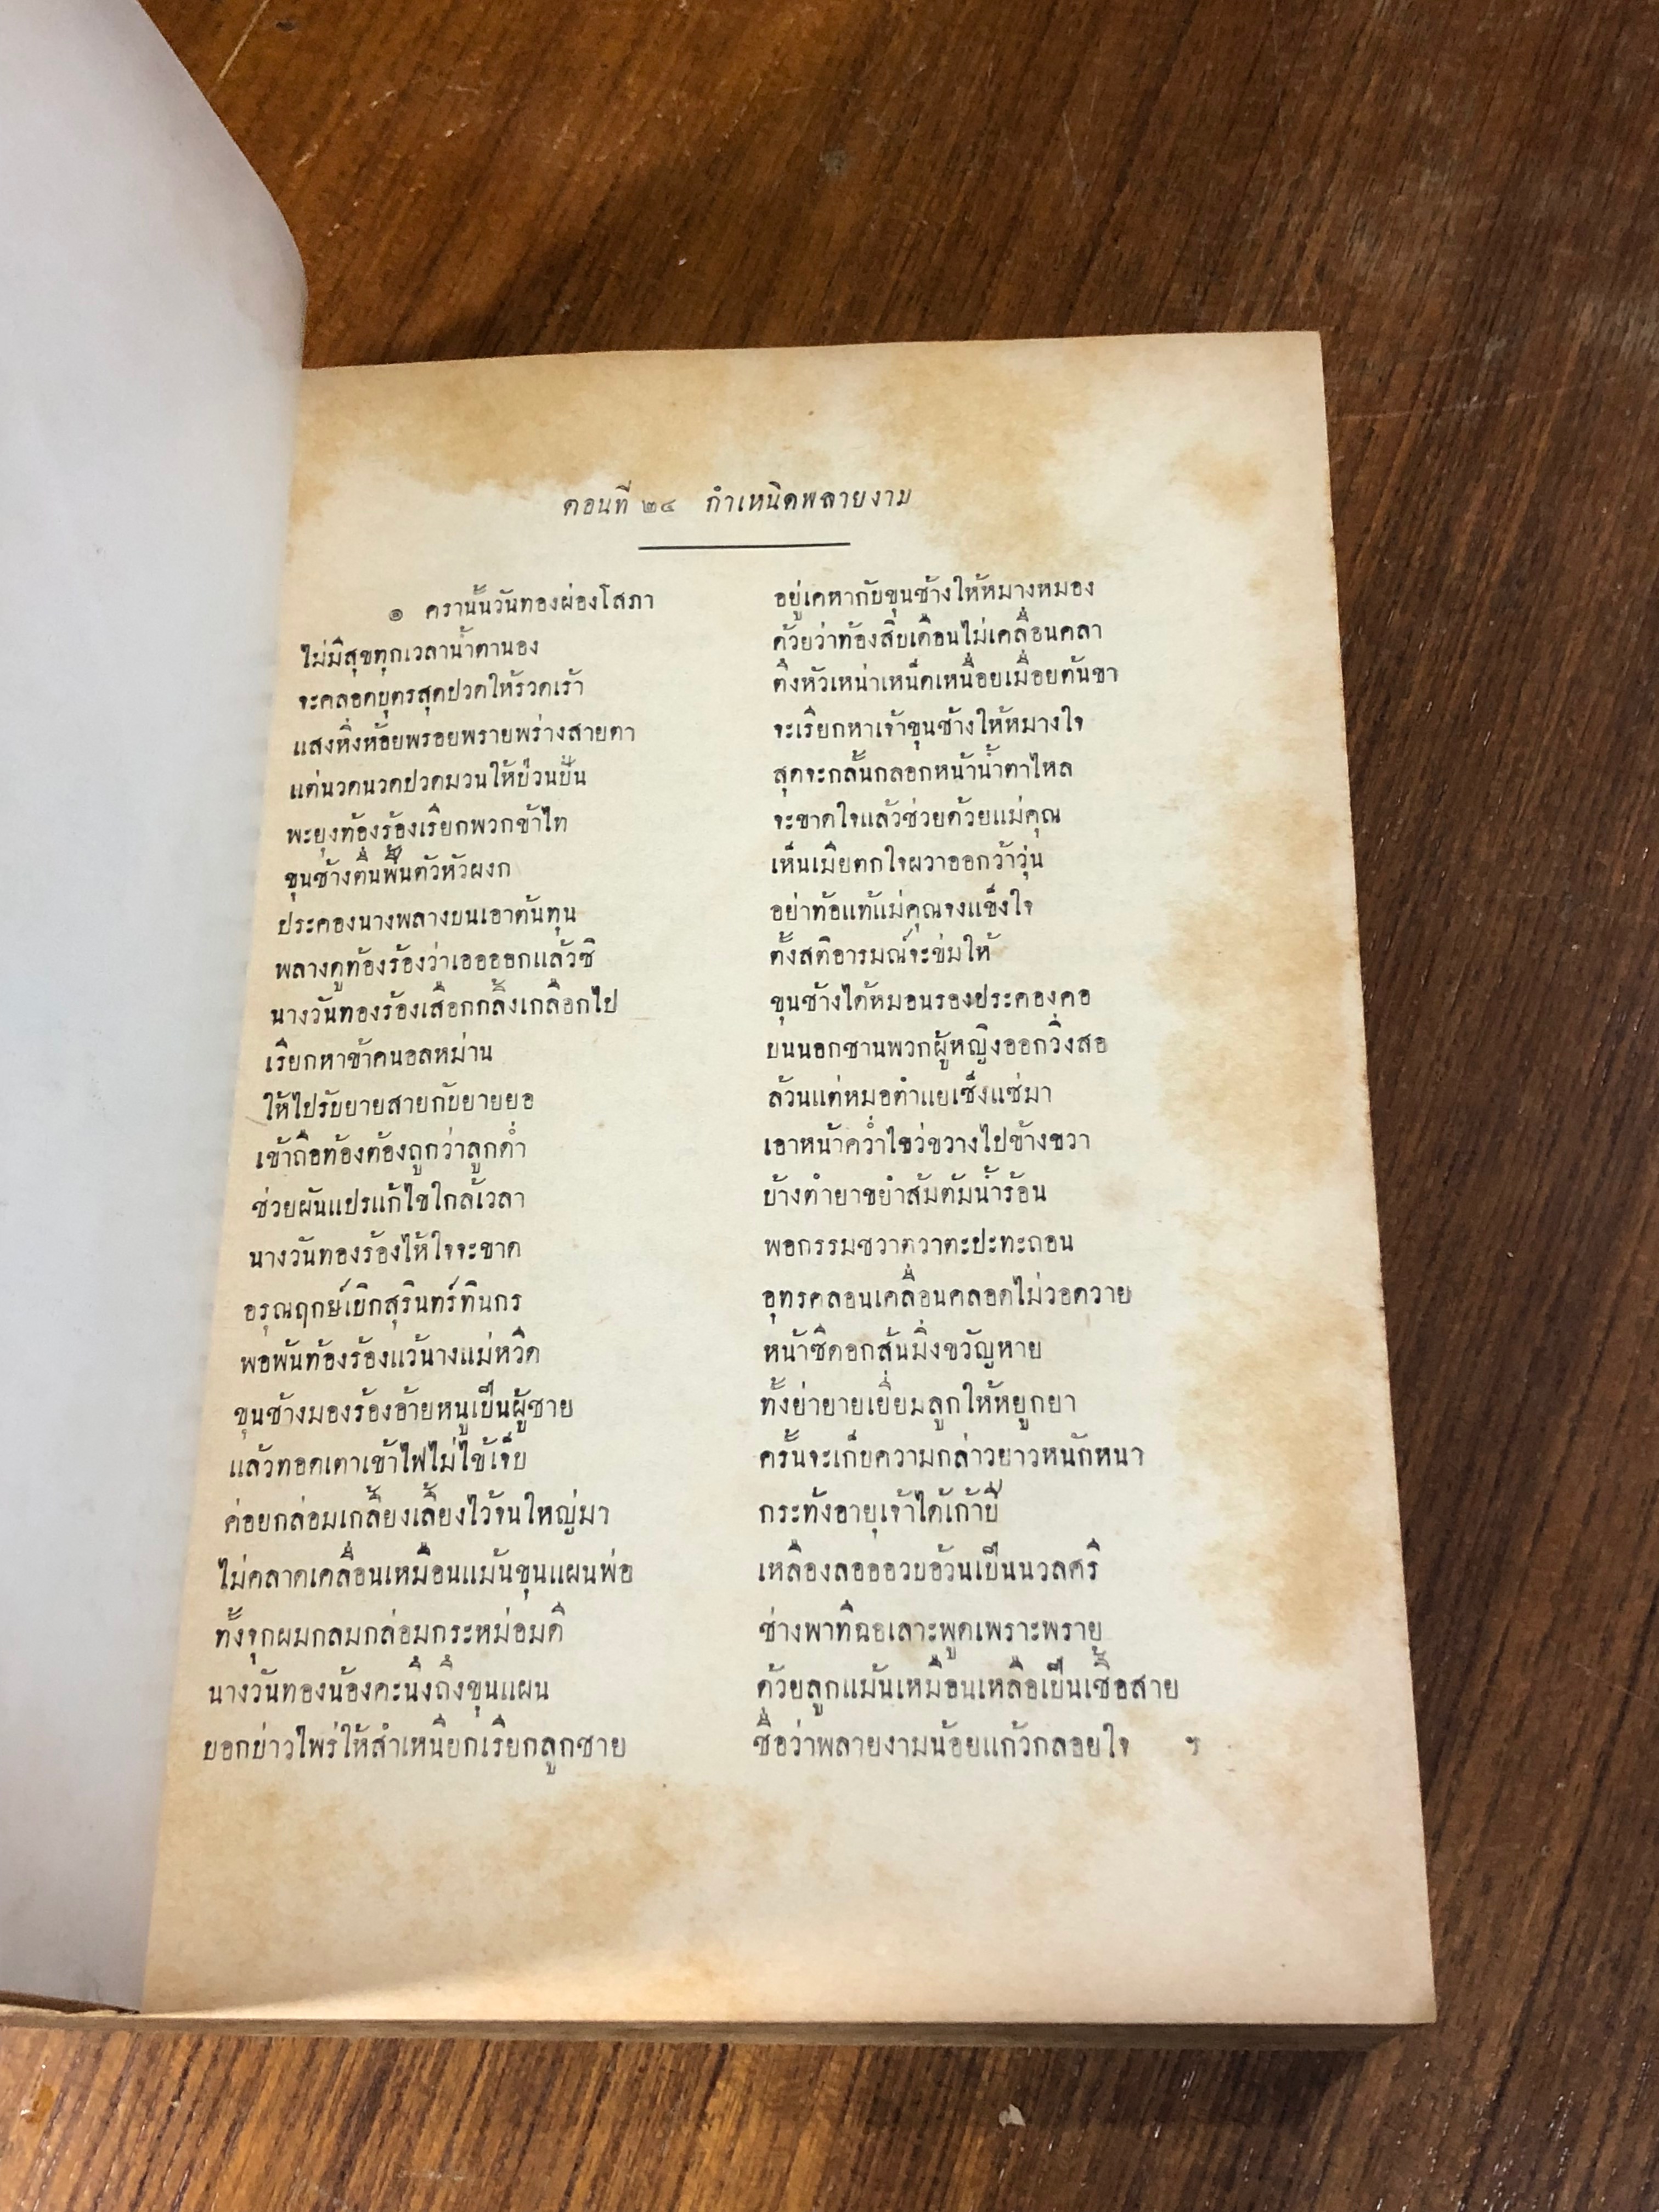 ตอนที่ ๒๔ กำเหนิดพลายงาม
๑ ครานั้นวันทองผ่องโสภา อยู่เคหากับขุนช้างให้หมางหมอง
ไม่มีสุขทุกเวลาน้ำตานอง ด้วยว่าท้องสิบเดือนไม่เคลื่อนคลา
จะคลอดบุตรสุดปวดให้รวดเร้า ตึงหัวเหน่าเหน็ดเหนื่อยเมื่อยต้นขา
แสงหิ่งห้อยพรอยพรายพร่างสายตา จะเรียกหาเจ้าขุนช้างให้หมางใจ
แต่นวดนวดปวดมวนให้ป่วนปั่น สุดจะกลั้นกลอกหน้าน้ำตาไหล
พะยุงท้องร้องเรียกพวกข้าไท จะขาดใจแล้วช่วยด้วยแม่คุณ
ขุนช้างตื่นฟื้นตัวหัวผงก เห็นเมียตกใจผวาออกว้าวุ่น
ประคองนางพลางบนเอาต้นทุน อย่าท้อแท้แม่คุณจงแข็งใจ
พลางดูท้องร้องว่าเออออกแล้วซิ ตั้งสติอารมณ์จะข่มให้
นางวันทองร้องเสือกกลิ้งเกลือกไป ขุนช้างได้หมอนรองประคองคอ
เรียกหาข้าคนอลหม่าน บนนอกชานพวกผู้หญิงออกวิ่งสอ
ให้ไปรับยายสายกับยายยอ ล้วนแต่หมอตำแยเซ็งแซ่มา
เข้าถือท้องต้องถูกว่าลูกต่ำ เอาหน้าคว่ำไขว่ขวางไปข้างขวา
ช่วยผันแปรแก้ไขใกล้เวลา บ้างตำยาขยำส้มต้มน้ำร้อน
นางวันทองร้องไห้ใจจะขาด พอกรรมชวาตวาตะปะทะถอน
อรุณฤกษ์เบิกสุรินทร์ทินกร อุทรคลอนเคลื่อนคลอดไม่วอดวาย
พอพ้นท้องร้องแว้นางแม่หวีด หน้าซีดอกสั่นมิ่งขวัญหาย
ขุนช้างมองร้องอ้ายหนูเป็นผู้ชาย ทั้งย่ายายเยี่ยมลูกให้หยูกยา
แล้วทอดเตาเข้าไฟไม่ไข้เจ็บ ครั้นจะเก็บความกล่าวยาวหนักหนา
ค่อยกล่อมเกลี้ยงเลี้ยงไว้จนใหญ่มา กระทั่งอายุเจ้าได้เก้าปี
ไม่คลาดเคลื่อนเหมือนแม้นขุนแผนพ่อ เหลืองลอออวบอ้วนเป็นนวลศรี
ทั้งจุกผมกลมกล่อมกระหม่อมดี ช่างพาทีฉอเลาะพูดเพราะพราย
นางวันทองน้องคะนึงถึงขุนแผน ด้วยลูกแม้นเหมือนเหลือเป็นเชื้อสาย
บอกบ่าวไพร่ให้สำเหนียกเรียกลูกชาย ชื่อว่าพลายงามน้อยแก้วกลอยใจ ฯ